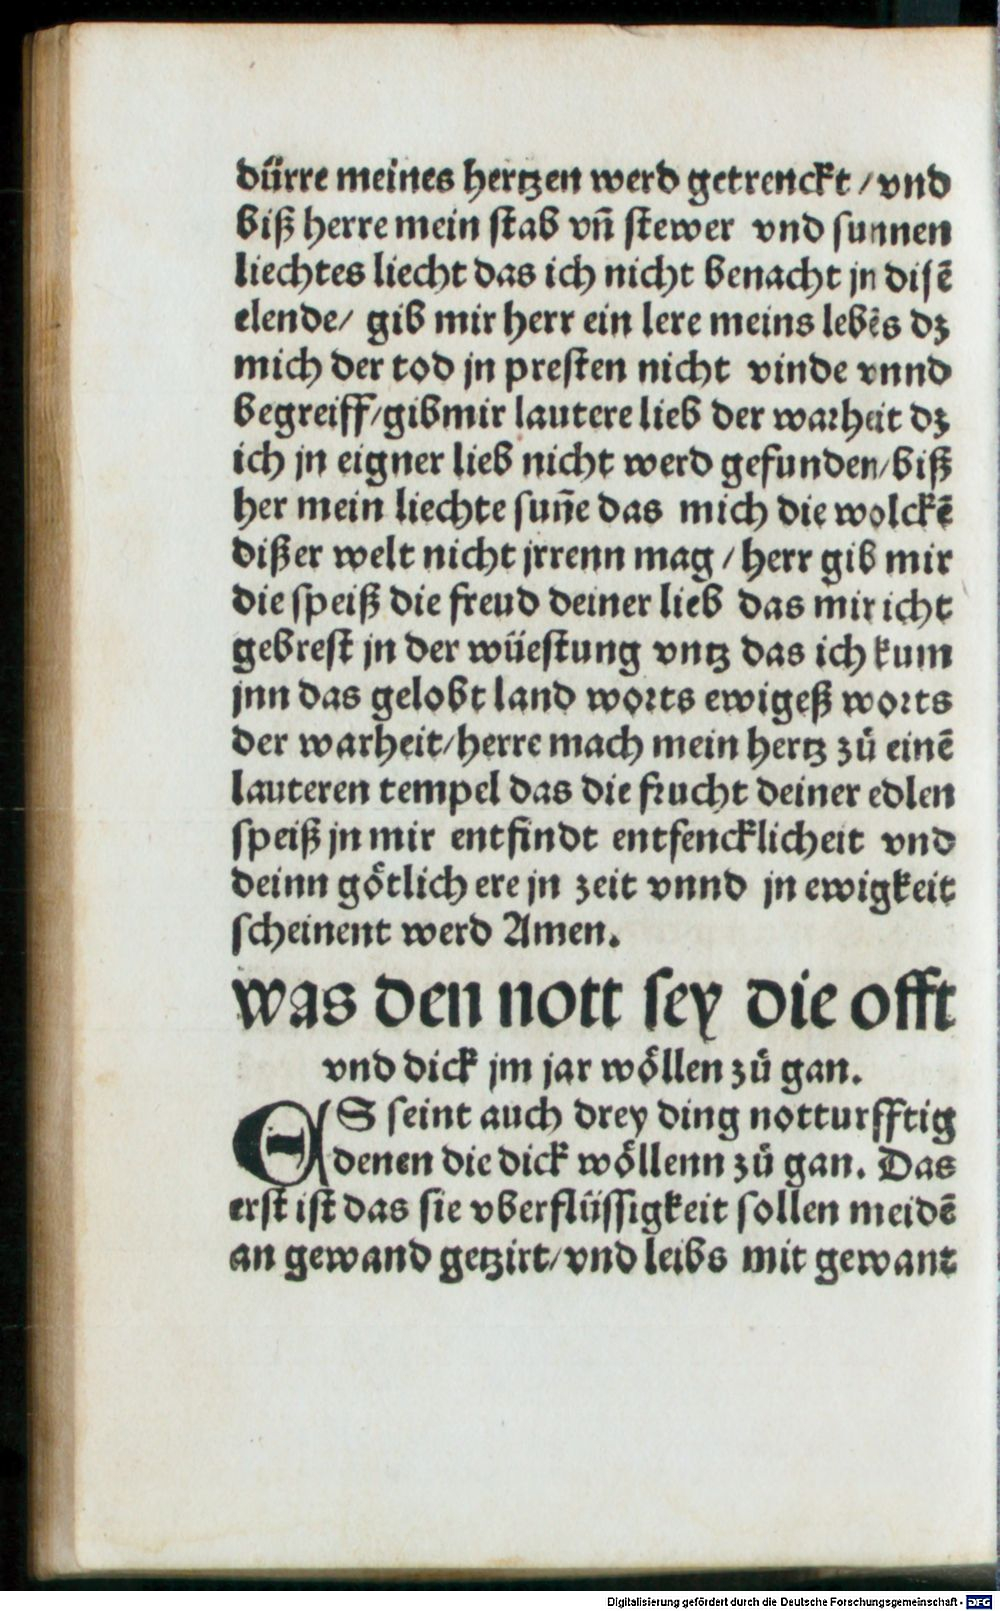 dürre meines hertzen werd getrenckt / vnd
biß herre mein stab vñ stewer vnd sunnen
liechtes liecht das ich nicht benacht jn disē
elende/ gib mir herr ein lere meins lebēs dz
mich der tod jn presten nicht vinde vnnd
begreiff/gibmir lautere lieb der warheit dz
ich jn eigner lieb nicht werd gefunden/biß
her mein liechte suñe das mich die wolckē
dißer welt nicht jrrenn mag / herr gib mir
die speiß die freud deiner lieb das mir icht
gebrest jn der wüestung vntz das ich kum
jnn das gelobt land worts ewigeß worts
der warheit/herre mach mein hertz zů einē
lauteren tempel das die frucht deiner edlen
speiß jn mir entfindt entfencklicheit vnd
deinn götlich ere jn zeit vnnd jn ewigkeit
scheinent werd Amen.
was den nott sey die offt
vnd dick jm jar wöllen zů gan.
ES seint auch drey ding notturfftig
denen die dick wöllenn zů gan. Das
erst ist das sie vberflüssigkeit sollen meidē
an gewand getzirt/vnd leibs mit gewant
Digitalisierung gefördert durch die Deutsche Forschungsgemeinschaft - DFG